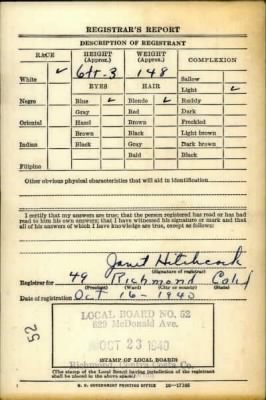 REGISTRAR'S REPORT
DESCRIPTION OF REGISTRANT
RACE HEIGHT (Approx.) WEIGHT (Approx.) COMPLEXION
White ✓ 6 ft-3 148 Sallow
EYES HAIR Light ✓
Negro Blue ✓ Blonde ✓ Ruddy
Gray Red Dark
Oriental Hazel Brown Freckled
Brown Black Light brown
Indian Black Gray Dark brown
Bald Black
Filipino
Other obvious physical characteristics that will aid in identification
I certify that my answers are true; that the person registered has read or has had
read to him his own answers; that I have witnessed his signature or mark and that
all of his answers of which I have knowledge are true, except as follows:
Janet Hitchcock
(Signature of registrar)
Registrar for 49 Richmond Calif
(Precinct) (Ward) (City or county) (State)
Date of registration Oct 16-1940
LOCAL BOARD NO. 52
629 McDonald Ave.
OCT 23 1940
Richmond, Contra Costa Co.
STAMP OF LOCAL BOARD
(The stamp of the Local Board having jurisdiction of the registrant
shall be placed in the above space.)
U. S. GOVERNMENT PRINTING OFFICE 16-17105
52